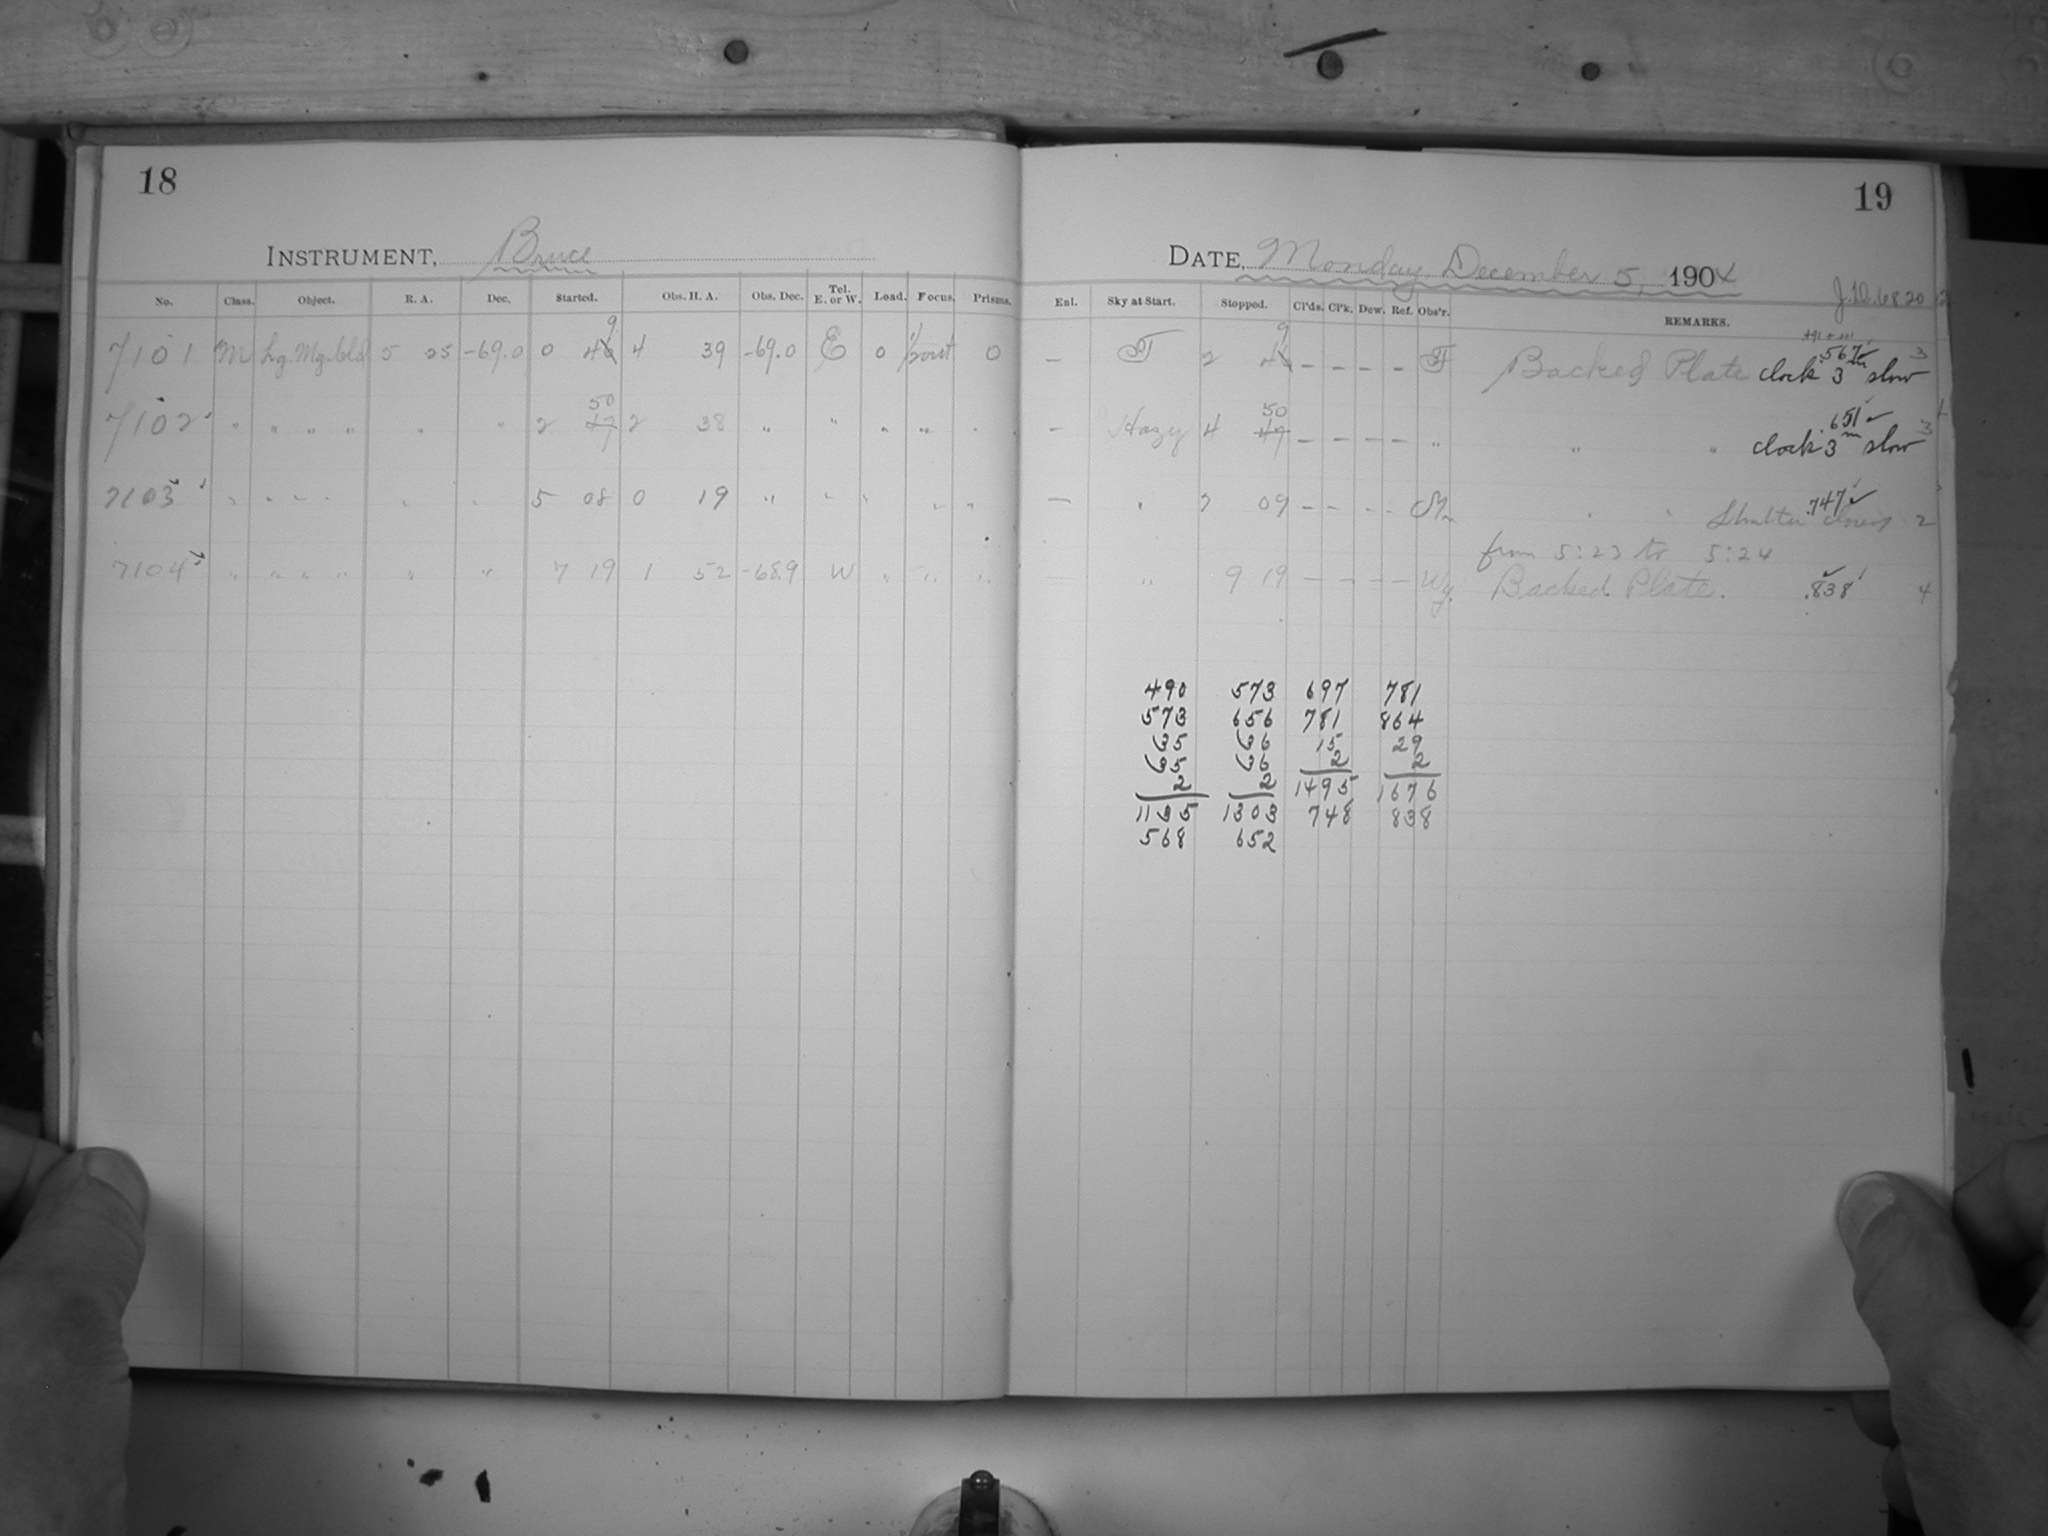 18
INSTRUMENT, Bruce
No. Class. Object. R. A. Dec. Started. Obs. H. A. Obs. Dec. Tel. E. or W. Load. Focus. Prisms.
7101 M Lg. Mg. Cld 5 25 -69.0 0 49 4 39 -69.0 E 0 0
7102 " " " " " " 2 50 2 38 " " " " " "
7103 " " " " " " 5 08 0 19 " " " " "
7104 " " " " " " 7 19 1 52 -68.9 W " " "
19
DATE, Monday December 5, 1904
J.D. 6820
Enl. Sky at Start. Stopped. Cl'ds. Cl'k. Dew. Ref. Obs'r. REMARKS.
— 2 49 – – – – Backed Plate .567 clock 3m slow 3
— Hazy 4 50 – – – – " " " .651 clock 3m slow 3
— " 7 09 – – – – " " .747 Shutter 2
from 5:23 to 5:24
— " 9 19 – – – – Wy. Backed Plate. .838 4
490 573 697 781
573 656 781 864
35 36 15 29
35 36 2 2
2 2 1495 1676
1135 1303 748 838
568 652